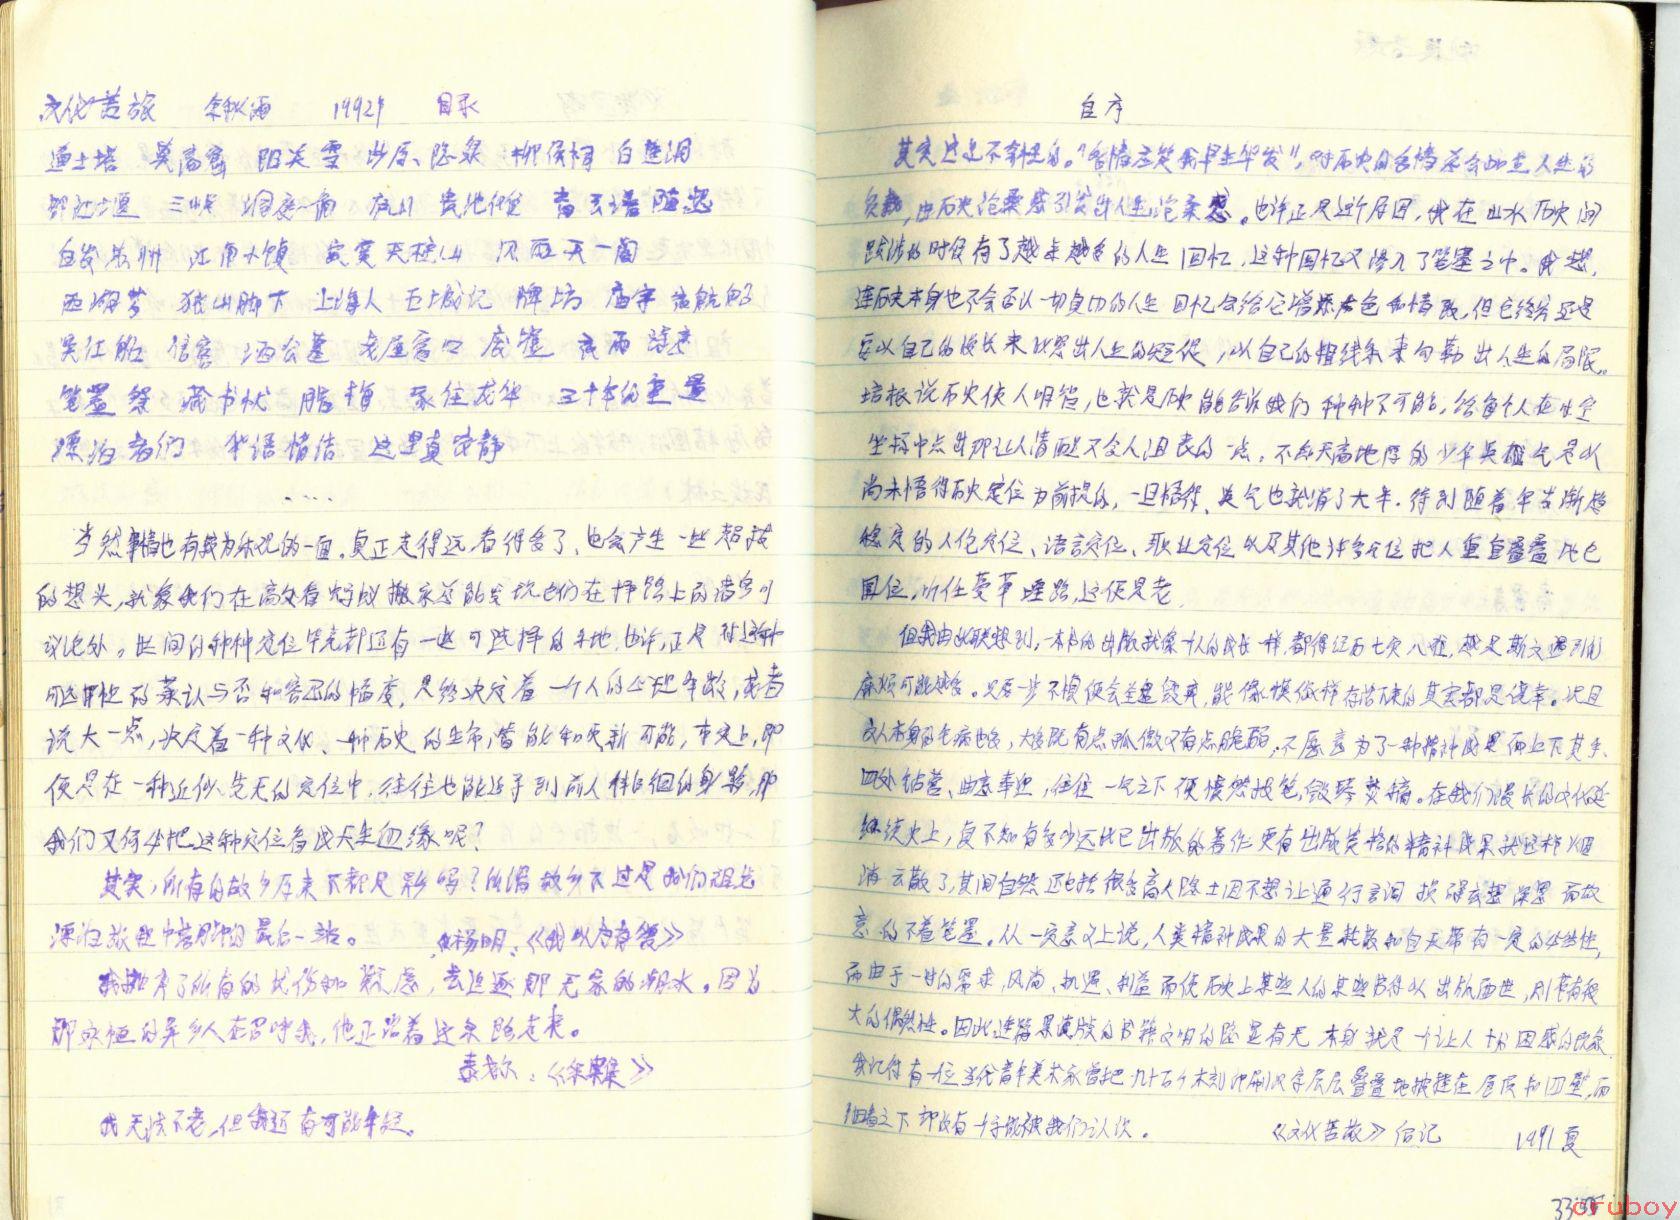 文化苦旅 余秋雨 1992年 目录
道士塔 莫高窟 阳关雪 沙原隐泉 柳侯祠 白莲洞
都江堰 三峡 洞庭一角 庐山 贵池傩 青云谱随想
白发苏州 江南小镇 寂寞天柱山 风雨天一阁
西湖梦 狼山脚下 上海人 五城记 牌坊 庙宇 夜航船
吴江船 信客 酒公墓 老屋窗口 废墟 夜雨诗意
笔墨祭 藏书忧 腊梅 家住龙华 三十年的重量
漂泊者们 华语情结 这里真安静
....
当然事情也有较为乐观的一面。真正走得远看得多了、也会产生一些超拔
的想头,就象我们在高处看蚂蚁搬家总能发现它们在择路上的诸多可
议论处。世间的种种定位毕竟都还有一些可选择的余地,也许,正是对这种
可选择性的承认与否和容忍的幅度,最终决定着一个人的心理年龄,或者
说大一点,决定着一种文化、一种历史的生命潜能和更新可能,事实上,即
便是在一种近似先天的定位中,往往也能追寻到前人徘徊的身影,那
我们又何必把这种定位看成天生血缘呢?
其实,所有的故乡原来不都是异乡吗?所谓故乡不过是我们祖先
漂泊旅程中落脚的最后一站。 杨明:《我以为有爱》
我抛弃了所有的忧伤和疑虑,去追逐那无家的潮水。因为
那永恒的异乡人在召唤我,他正沿着这条路走来。
泰戈尔:《采果集》
我无法不老,但我还有可能年轻。
自序
其实这是不奇怪的。“多情应笑我早生华发”,对历史的多情总会加重人生的
负载,由历史沧桑感引发出人生沧桑感。也许正是这个原因,我在山水历史间
跋涉的时候有了越来越多的人生回忆,这种回忆又渗入了笔墨之中。我想,
连历史本身也不会否认一切真切的人生回忆会给它增添声色和情致,但它终究还是
要以自己的漫长来比照出人生的短促,以自己的粗线条来勾勒出人生的局限。
培根说历史使人明智,也就是历史能告诉我们种种不可能,给每个人在时空
坐标中点出那让人清醒又令人沮丧的一点。不知天高地厚的少年英雄气是以
尚未悟得历史定位为前提的,一旦悟得、英气也就消了大半。待到随着年岁渐趋
稳定的人伦定位、语言定位、职业定位以及其他许多定位把人重重叠叠地包
围住,所任蔓草埋路,这便是老。
但我由此联想到,一本书的出版就像一个人的成长一样,都得经历七灾八难,越是斯文遇到的
麻烦可能越多。只要一步不慎便会全盘毁弃,能像模像样存活下来的其实都是侥幸。况且
文人本身的毛病也多,大多既有点孤傲又有点脆弱,不愿意为了一种精神成果而上下其手、
四处钻营、曲意奉迎,往往一気之下便愤然投笔,毁琴焚稿。在我们漫长的文化延
续史上,真不知有多少远比已出版的著作更有出版资格的精神成果就这样烟
消云散了,其间自然还包括很多高人隐士因不想让通行言词损碍玄想深思而故
意的不着笔墨。从一定意义上说,人类精神成果的大量耗散和自灭带有一定的必然性,
而由于一时的需求、风尚、机遇、利益而使历史上某些人的某些书得以出版面世,则带有很
大的偶然性。因此连篇累牍的书籍文明的隐显有无本身就是一个让人十分困惑的现象。
我记得有一位当代青年美术家曾把九十五个木刻印刷汉字层层叠叠地披挂在屋顶和四壁,而
细看之下却没有一字能被我们认读。 《文化苦旅》后记 1991 夏
33
oruboy